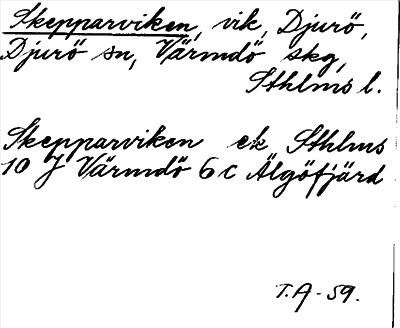 Skepparviken, vik, Djurö,
Djurö sn, Värmdö skg,
Sthlms l.
Skepparviken ek Sthlms
10 J Värmdö 6 c Älgöfjärd
T.A - 59.